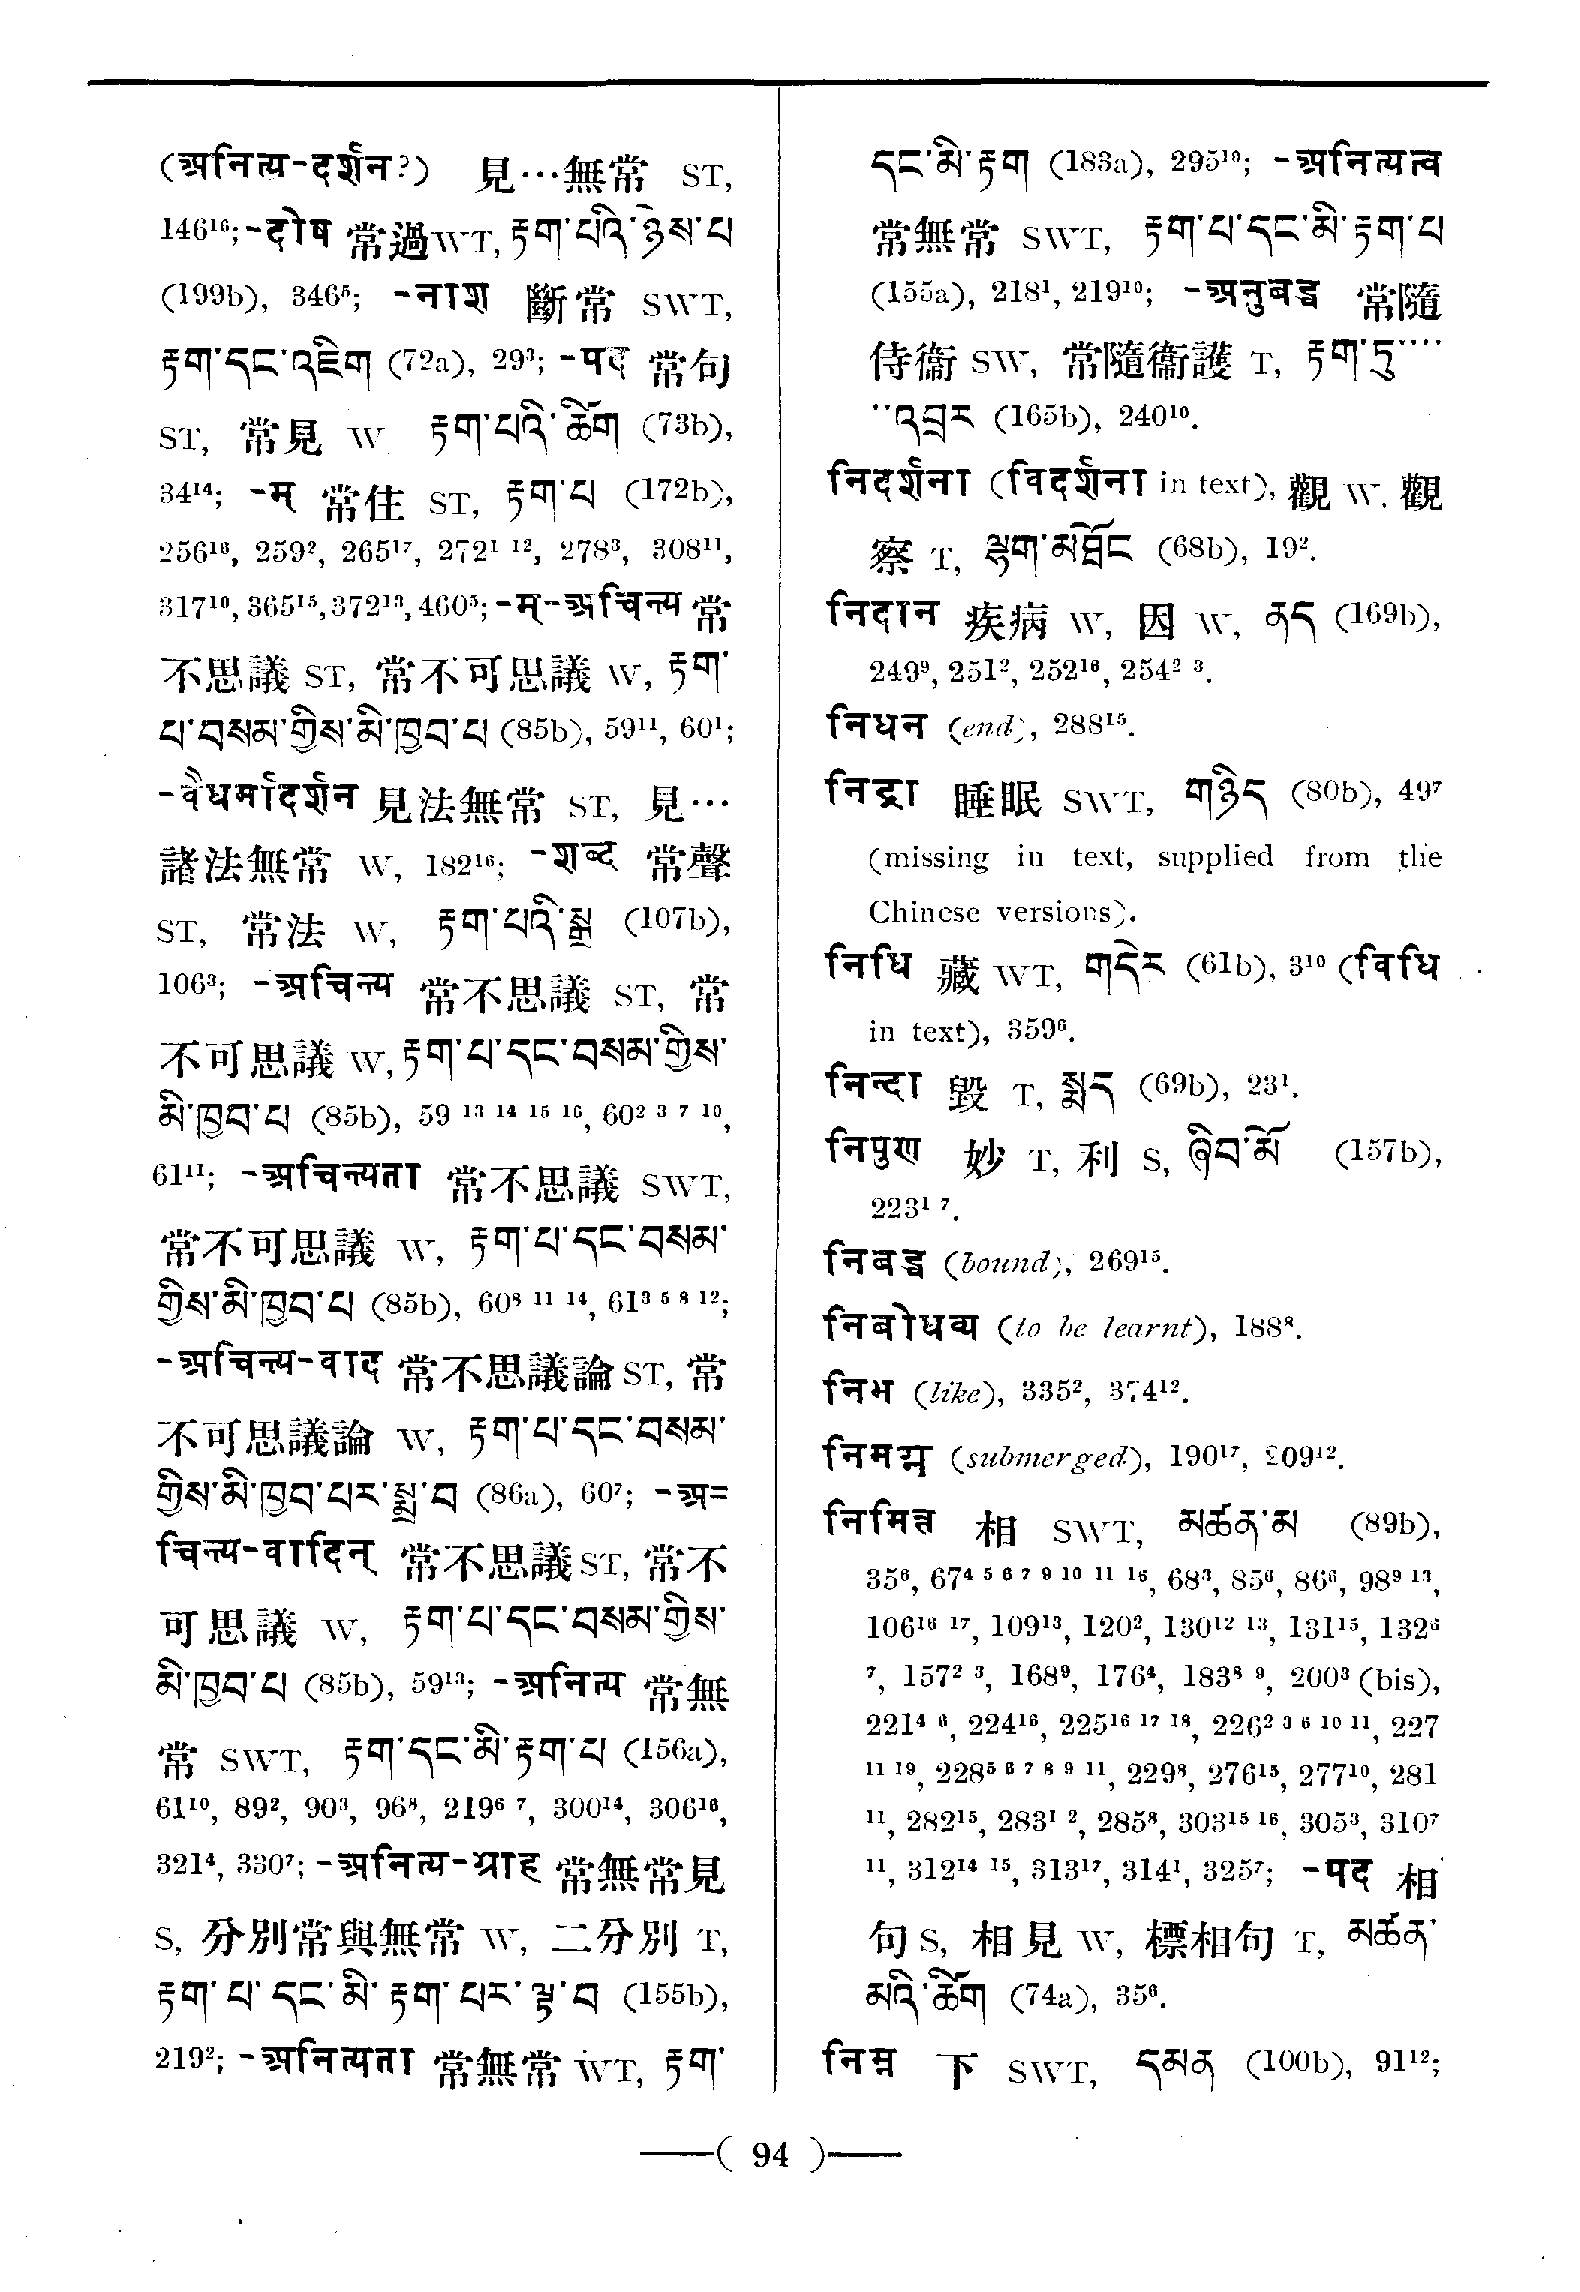 (अनित्य-दर्शन?) 見…無常 ST,
146¹⁶;-दोष 常過WT, རྟག་པའི་ཉེས་པ
(199b), 346⁵; -नाश 斷常 SWT,
རྟག་དང་འཇིག (72a), 29³; -पद 常句
ST, 常見 W རྟག་པའི་ཚིག (73b),
34¹⁴; -म् 常住 ST, རྟག་པ (172b),
256¹⁶, 259², 265¹⁷, 272¹ ¹², 278³, 308¹¹,
317¹⁰, 365¹⁵, 372¹³, 460⁵; -म्-अचिन्त्य 常
不思議 ST, 常不可思議 W, རྟག་
པ་བསམ་གྱིས་མི་ཁྱབ་པ (85b), 59¹¹, 60¹;
-वैधर्मादर्शन 見法無常 ST, 見…
諸法無常 W, 182¹⁶; -शब्द 常聲
ST, 常法 W, རྟག་པའི་སྒྲ (107b),
106³; -अचिन्त्य 常不思議 ST, 常
不可思議 W, རྟག་པ་དང་བསམ་གྱིས་
མི་ཁྱབ་པ (85b), 59 ¹³ ¹⁴ ¹⁵ ¹⁶, 60² ³ ⁷ ¹⁰,
61¹¹; -अचिन्त्यता 常不思議 SWT,
常不可思議 W, རྟག་པ་དང་བསམ་
གྱིས་མི་ཁྱབ་པ (85b), 60⁸ ¹¹ ¹⁴, 61³ ⁵ ⁸ ¹²;
-अचिन्त्य-वाद 常不思議論 ST, 常
不可思議論 W, རྟག་པ་དང་བསམ་
གྱིས་མི་ཁྱབ་པར་སྨྲ་བ (86a), 60⁷; -अ=
चिन्त्य-वादिन् 常不思議 ST, 常不
可思議 W, རྟག་པ་དང་བསམ་གྱིས་
མི་ཁྱབ་པ (85b), 59¹³; -अनित्य 常無
常 SWT, རྟག་དང་མི་རྟག་པ (156a),
61¹⁰, 89², 90³, 96⁸, 219⁶ ⁷, 300¹⁴, 306¹⁶,
321⁴, 330⁷; -अनित्य-ग्राह 常無常見
S, 分別常與無常 W, 二分別 T,
རྟག་པ་དང་མི་རྟག་པར་ལྟ་བ (155b),
219²; -अनित्यता 常無常 WT, རྟག་
དང་མི་རྟག (183a), 295¹⁰; -अनित्यत्व
常無常 SWT, རྟག་པ་དང་མི་རྟག་པ
(155a), 218¹, 219¹⁰; -अनुबद्ध 常隨
侍衞 SW, 常隨衞護 T, རྟག་ཏུ····
··འབྲང (165b), 240¹⁰.
निदर्शना (विदर्शना in text), 觀 W. 觀
察 T, ལྷག་མཐོང (68b), 19².
निदान 疾病 W, 因 W, ནད (169b),
249⁹, 251², 252¹⁶, 254² ³.
निधन (end), 288¹⁵.
निद्रा 睡眠 SWT, གཉིད (80b), 49⁷
(missing in text, supplied from the
Chinese versions).
निधि 藏 WT, གཏེར (61b), 3¹⁰ (विधि
in text), 359⁶.
निन्दा 毀 T, སྨད (69b), 23¹.
निपुण 妙 T, 利 S, ཞིབ་མོ (157b),
223¹ ⁷.
निबद्ध (bound), 269¹⁵.
निबोधव्य (to be learnt), 188⁸.
निभ (like), 335², 374¹².
निमग्न (submerged), 190¹⁷, 209¹².
निमित्त 相 SWT, མཚན་མ (89b),
35⁶, 67⁴ ⁵ ⁶ ⁷ ⁹ ¹⁰ ¹¹ ¹⁶, 68³, 85⁶, 86⁶, 98⁹ ¹³,
106¹⁶ ¹⁷, 109¹³, 120², 130¹² ¹³, 131¹⁵, 132⁶
⁷, 157² ³, 168⁹, 176⁴, 183⁸ ⁹, 200³ (bis),
221⁴ ⁶, 224¹⁶, 225¹⁶ ¹⁷ ¹⁸, 226² ³ ⁶ ¹⁰ ¹¹, 227
¹¹ ¹⁹, 228⁵ ⁶ ⁷ ⁸ ⁹ ¹¹, 229⁸, 276¹⁵, 277¹⁰, 281
¹¹, 282¹⁵, 283¹ ², 285⁸, 303¹⁵ ¹⁶, 305³, 310⁷
¹¹, 312¹⁴ ¹⁵, 313¹⁷, 314¹, 325⁷; -पद 相
句 S, 相見 W, 標相句 T, མཚན་
མའི་ཚིག (74a), 35⁶.
निम्न 下 SWT, དམན (100b), 91¹²;
—( 94 )—